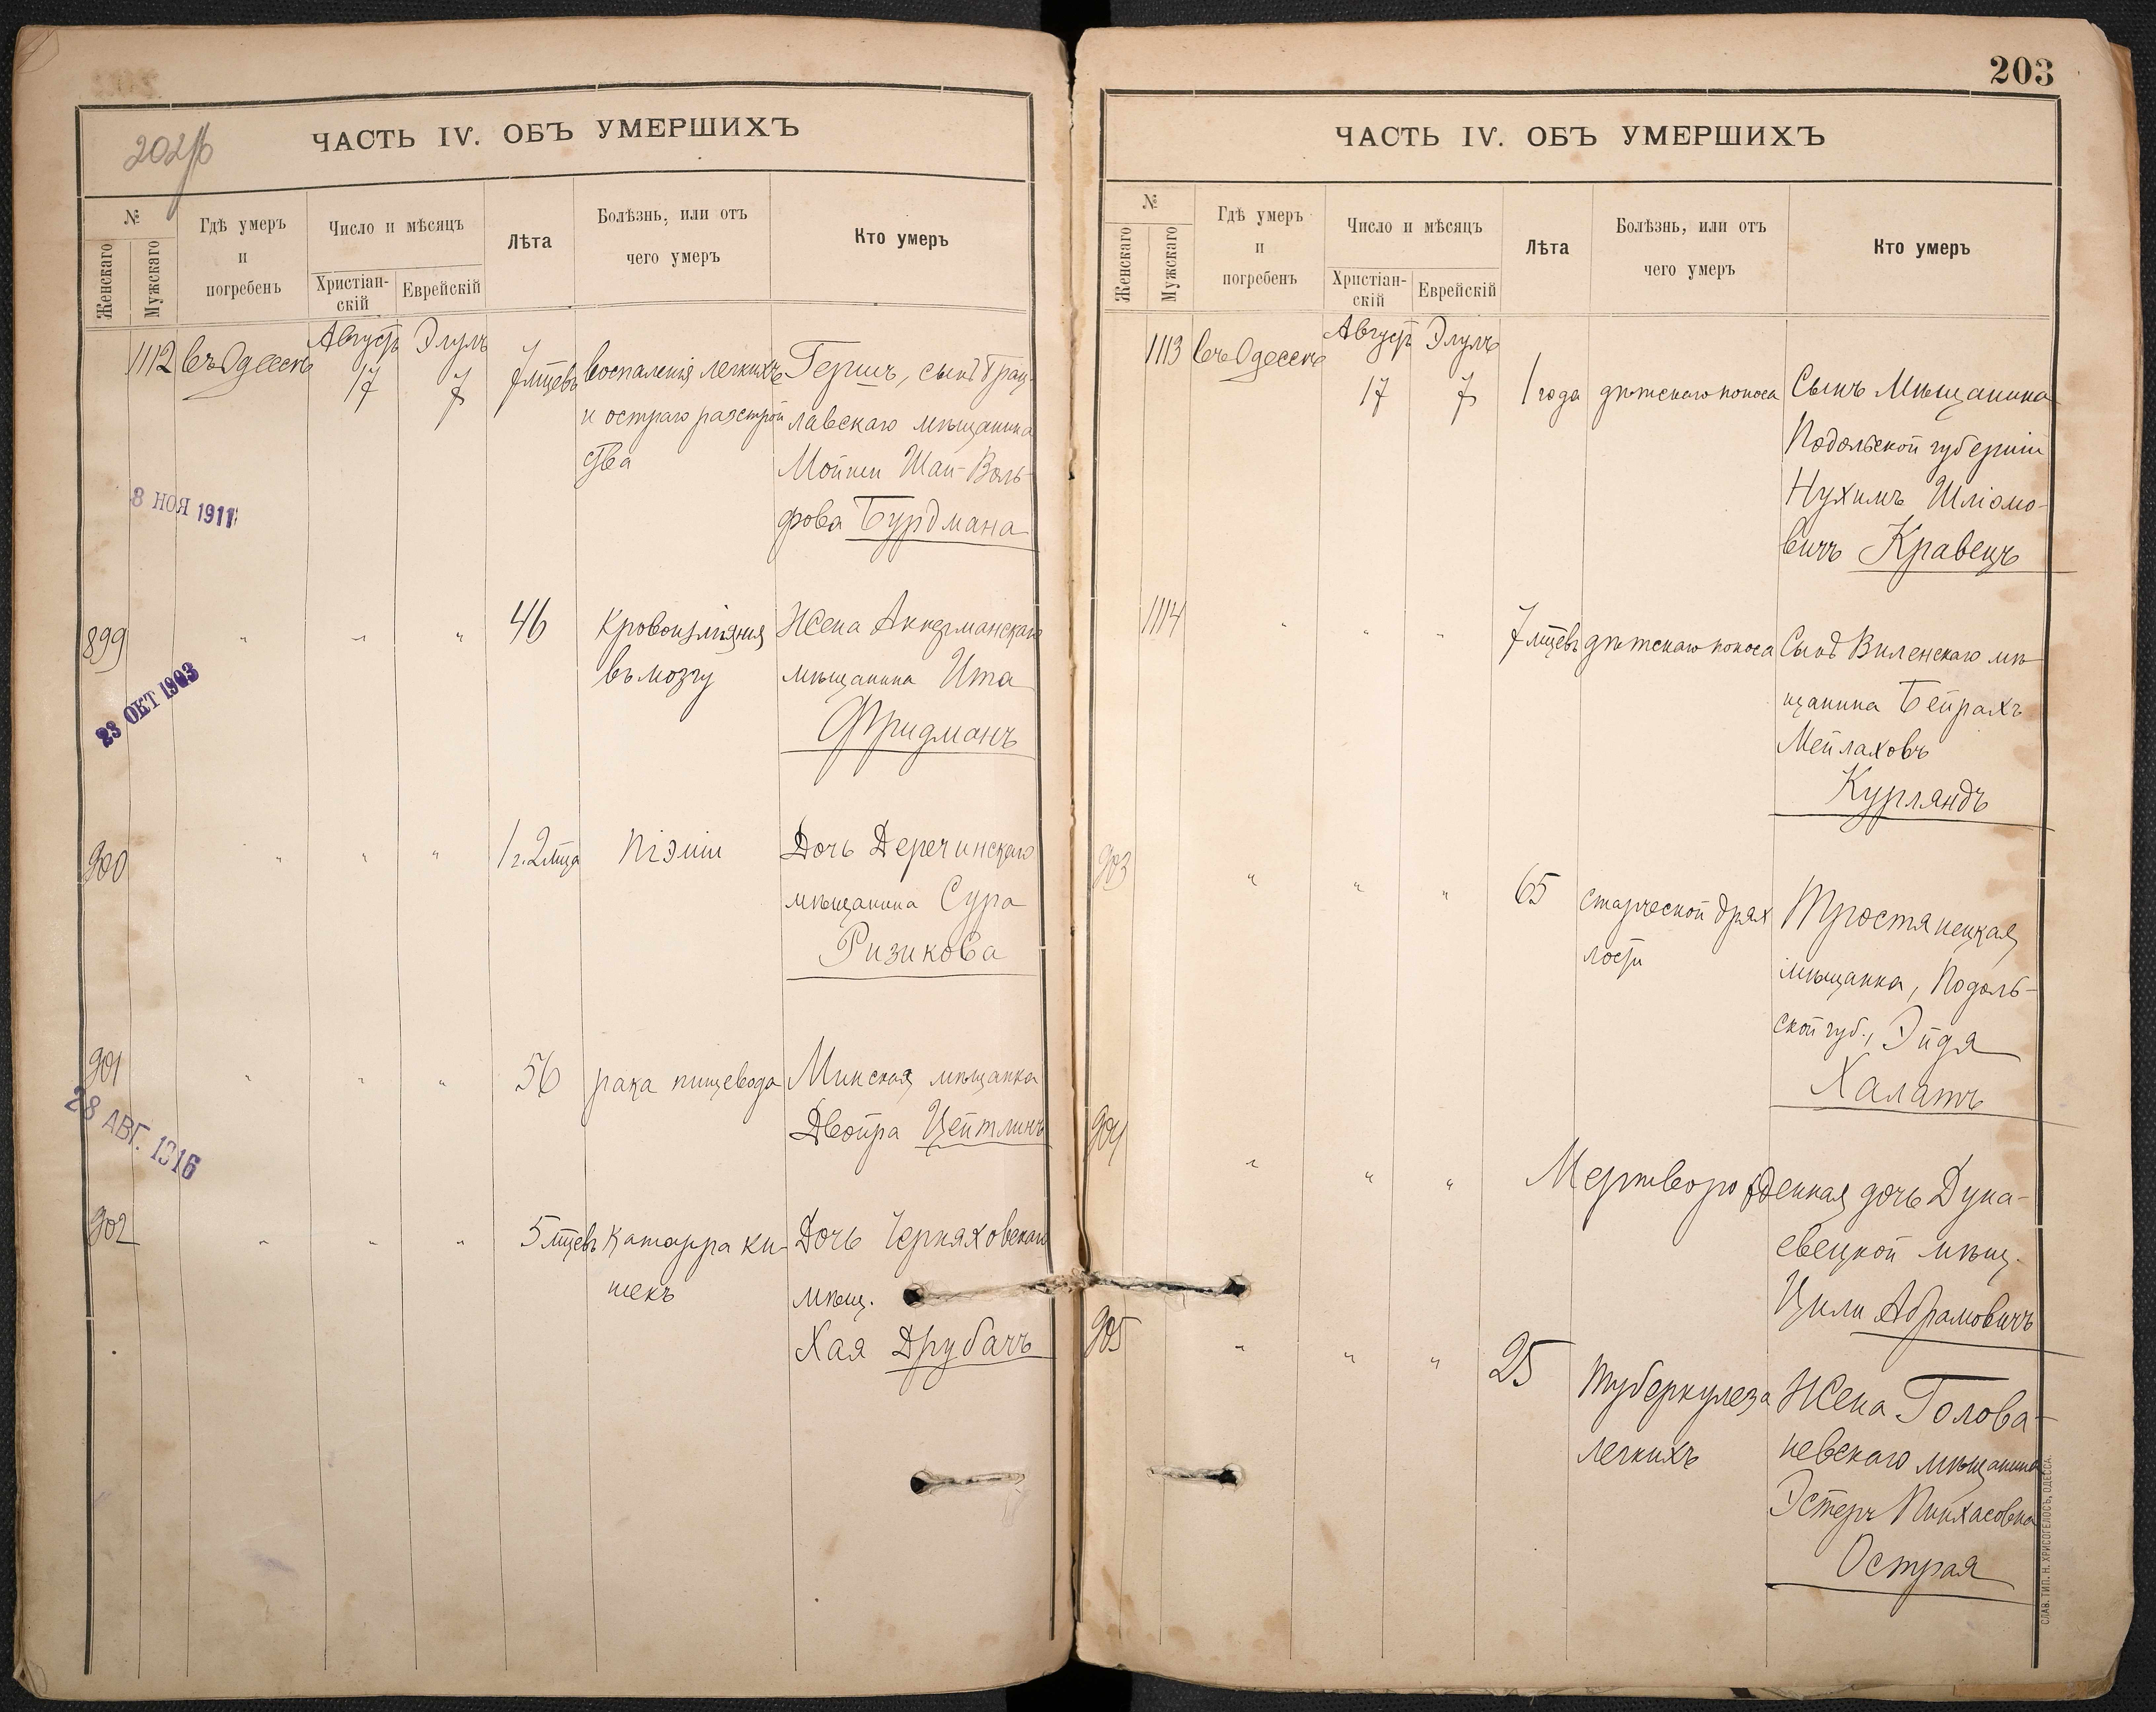 202 об
ЧАСТЬ IV. ОБЪ УМЕРШИХЪ
№
Женскаго
Мужскаго
Гдѣ умеръ
и
погребенъ
Число и мѣсяцъ
Христіан-
скій
Еврейскій
Лѣта
Болѣзнь, или отъ
чего умеръ
Кто умеръ
1112 въ Одессѣ Августъ 17 Элулъ 7 7 мцевъ воспаленія легкихъ Гершъ, сынъ Брац-
и остраго разстрой лавскаго мѣщанина
ства Мойши Шаи-Воль-
фова Бурдмана
8 НОЯ 1911
899 " " " 46 Кровоизліянія Жена Аккерманскаго
въ мозгу мѣщанина Ита
Фридманъ
23 ОКТ 1903
900 " " " 1 г. 2 мца піэміи Дочь Деречинскаго
мѣщанина Сура
Ризикова
901 " " " 56 рака пищевода Минская мѣщанка
Двойра Цейтлинъ
28 АВГ. 1916
902 " " " 5 мцевъ Катарра ки- Дочь Черняховскаго
шекъ мѣщ.
Хая Друбачъ
203
ЧАСТЬ IV. ОБЪ УМЕРШИХЪ
№
Женскаго
Мужскаго
Гдѣ умеръ
и
погребенъ
Число и мѣсяцъ
Христіан-
скій
Еврейскій
Лѣта
Болѣзнь, или отъ
чего умеръ
Кто умеръ
1113 въ Одессѣ Августъ 17 Элулъ 7 1 года дѣтскаго поноса Сынъ Мѣщанина
Подольской губерніи
Нухимъ Шліомо-
вичъ Кравецъ
1114 " " " 7 мцевъ дѣтскаго поноса Сынъ Виленскаго мѣ-
щанина Бейрахъ
Мейлаховъ
Курляндъ
903 " " " 65 старческой дрях Тростянецкая
лости мѣщанка, Подоль-
ской губ., Эйдя
Халатъ
904 " " " Мертворожденная дочь Дуна-
евецкой мѣщ.
Цили Абрамовичъ
905 " " " 25 туберкулеза Жена Голова-
легкихъ невскаго мѣщанина
Эстеръ Пинхасовна
Острая
СЛАВ. ТИП. Н. ХРИСОГЕЛОСЪ, ОДЕССА.